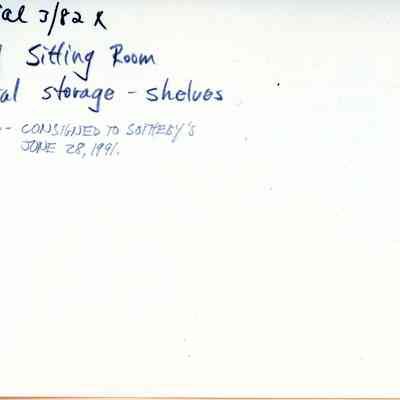 ial 3/82 R
Sitting Room
al storage - shelves
- CONSIGNED TO SOTHEBY'S
JUNE 28, 1991.